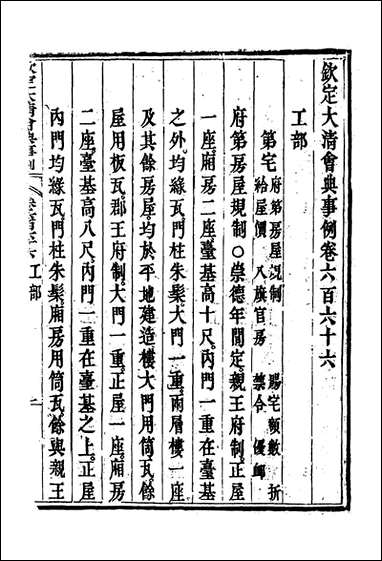 欽定大清會典事例卷六百六十六
工部
第宅 府第房屋規制 賜宅額數 折
給屋價 八旗官房 禁令 優卹
府第房屋規制○崇德年閒定。親王府制。正屋
一座。廂房二座。臺基高十尺。內門一重在臺基
之外。均綠瓦。門柱朱髹。大門一重。兩層樓一座
及其餘房屋。均於平地建造。樓大門用筒瓦。餘
屋用板瓦。郡王府制。大門一重。正屋一座。廂房
二座。臺基高八尺。內門一重在臺基之上。正屋
內門均綠瓦。門柱朱髹。廂房用筒瓦。餘與親王
工部